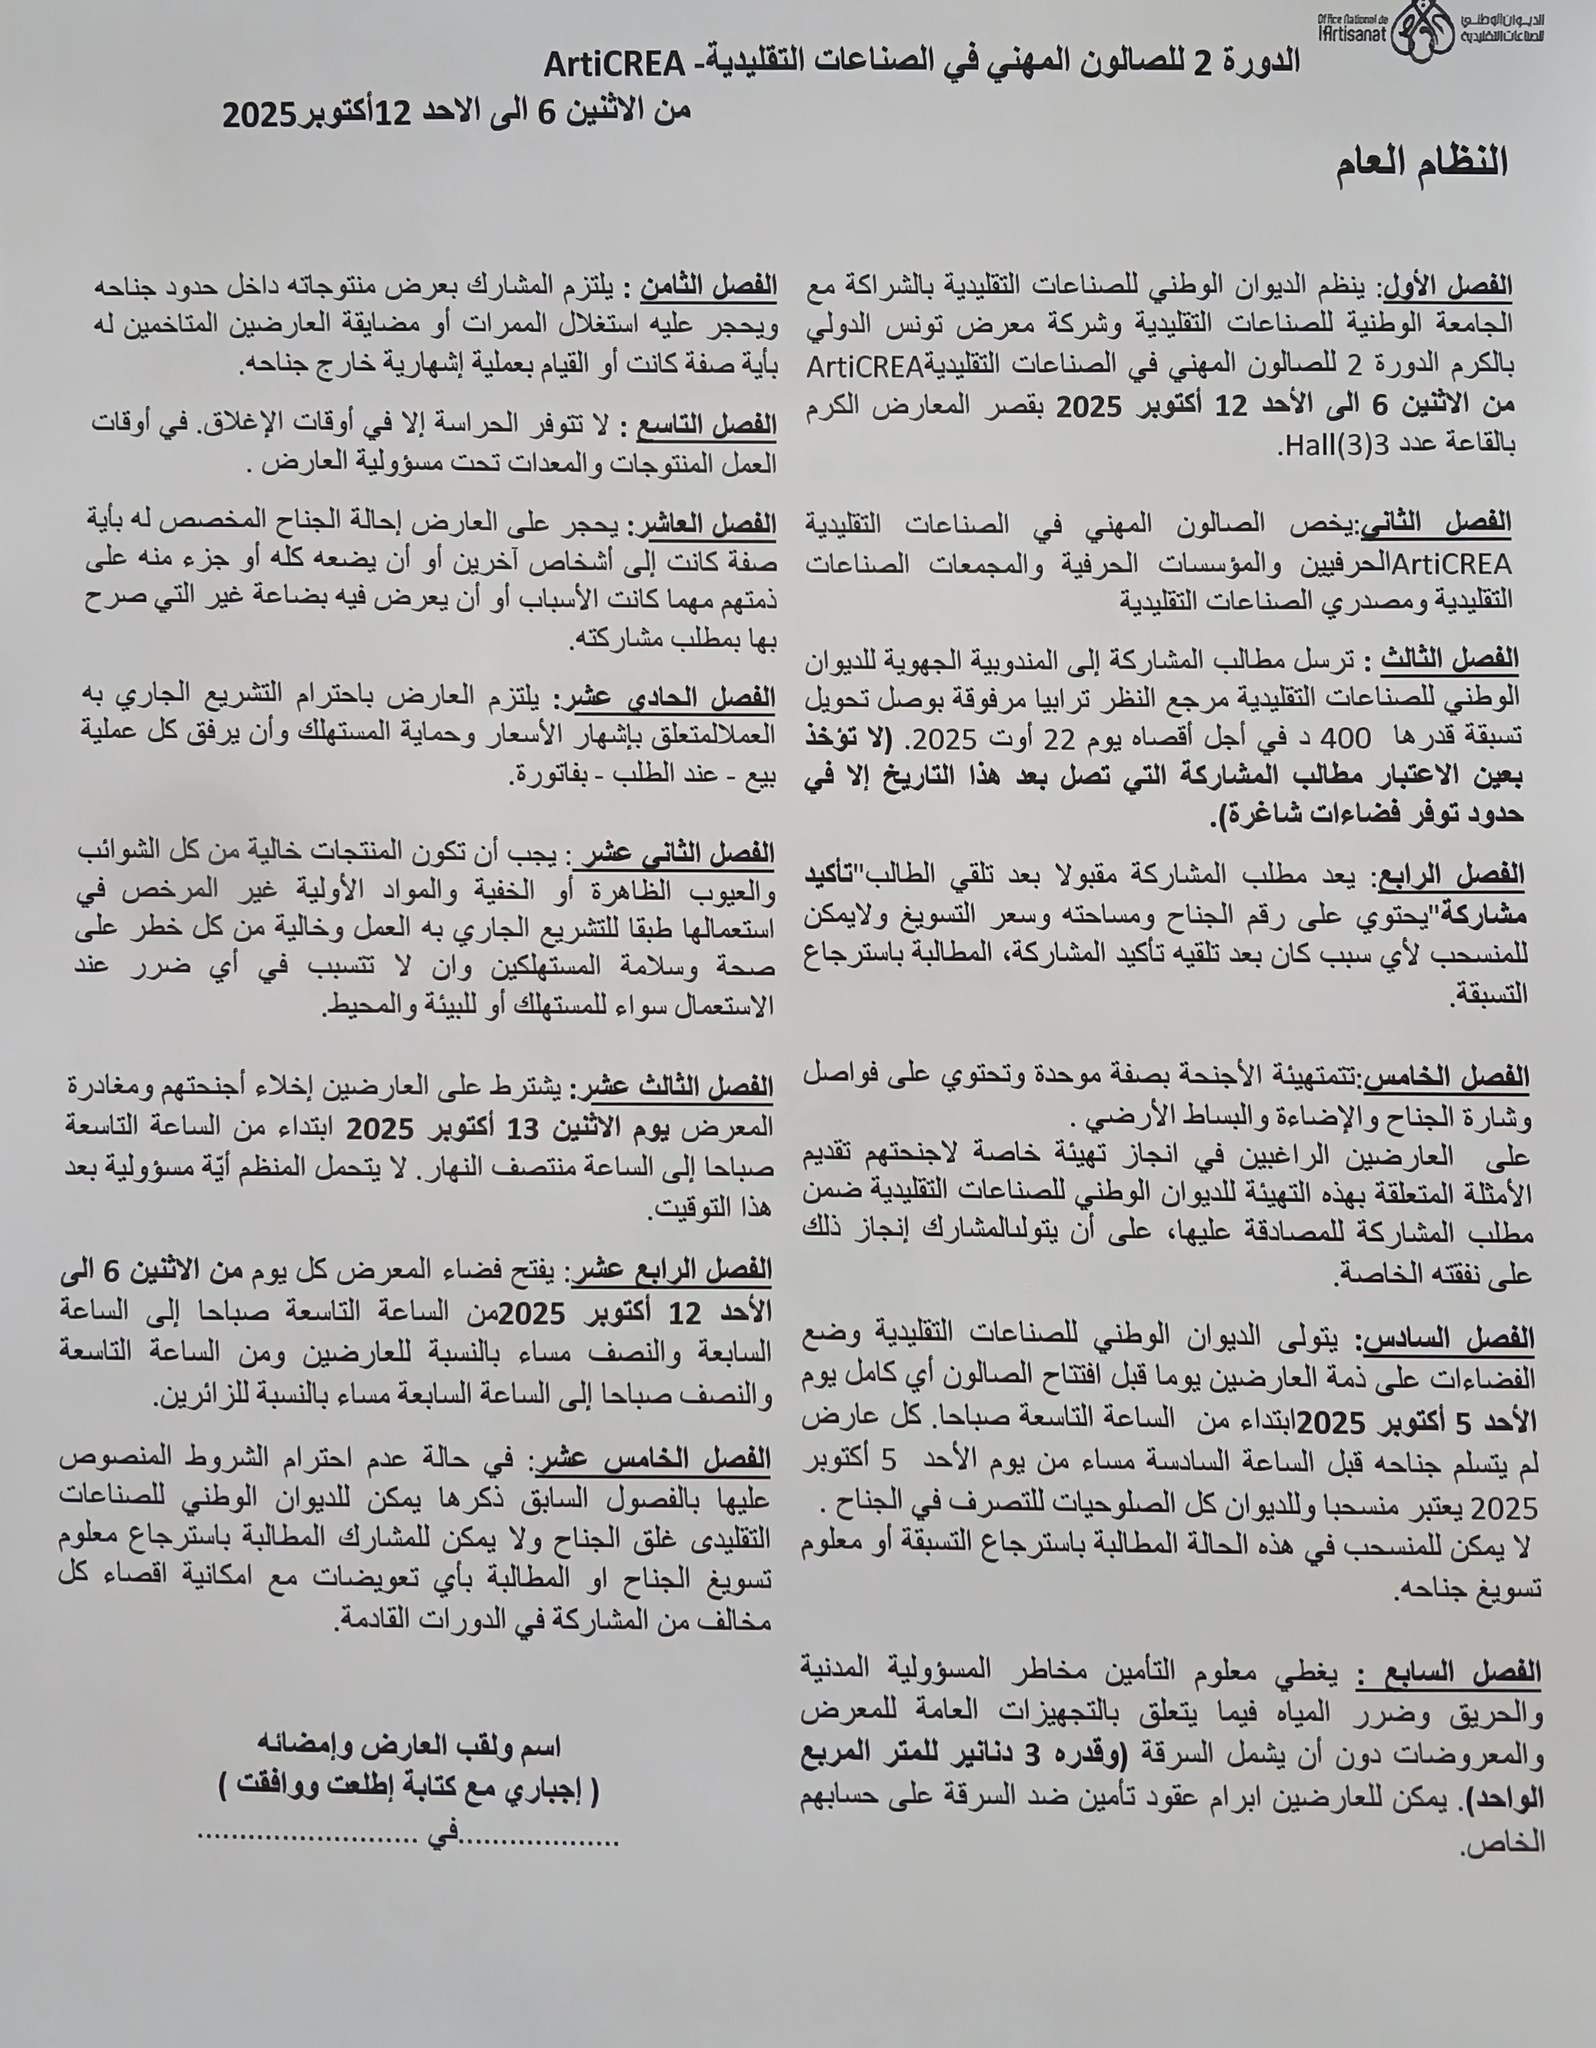 Office National de
l'Artisanat
الديوان الوطني
للصناعات التقليدية
الدورة 2 للصالون المهني في الصناعات التقليدية- ArtiCREA
من الاثنين 6 الى الاحد 12أكتوبر2025
النظام العام
الفصل الأول: ينظم الديوان الوطني للصناعات التقليدية بالشراكة مع
الجامعة الوطنية للصناعات التقليدية وشركة معرض تونس الدولي
بالكرم الدورة 2 للصالون المهني في الصناعات التقليديةArtiCREA
من الاثنين 6 الى الأحد 12 أكتوبر 2025 بقصر المعارض الكرم
بالقاعة عدد 3(3)Hall.
الفصل الثاني:يخص الصالون المهني في الصناعات التقليدية
ArtiCREAالحرفيين والمؤسسات الحرفية والمجمعات الصناعات
التقليدية ومصدري الصناعات التقليدية
الفصل الثالث : ترسل مطالب المشاركة إلى المندوبية الجهوية للديوان
الوطني للصناعات التقليدية مرجع النظر ترابيا مرفوقة بوصل تحويل
تسبقة قدرها 400 د في أجل أقصاه يوم 22 أوت 2025. (لا تؤخذ
بعين الاعتبار مطالب المشاركة التي تصل بعد هذا التاريخ إلا في
حدود توفر فضاءات شاغرة).
الفصل الرابع: يعد مطلب المشاركة مقبولا بعد تلقي الطالب"تأكيد
مشاركة"يحتوي على رقم الجناح ومساحته وسعر التسويغ ولايمكن
للمنسحب لأي سبب كان بعد تلقيه تأكيد المشاركة، المطالبة باسترجاع
التسبقة.
الفصل الخامس:تتمتهيئة الأجنحة بصفة موحدة وتحتوي على فواصل
وشارة الجناح والإضاءة والبساط الأرضي .
على العارضين الراغبين في انجاز تهيئة خاصة لاجنحتهم تقديم
الأمثلة المتعلقة بهذه التهيئة للديوان الوطني للصناعات التقليدية ضمن
مطلب المشاركة للمصادقة عليها، على أن يتولىالمشارك إنجاز ذلك
على نفقته الخاصة.
الفصل السادس: يتولى الديوان الوطني للصناعات التقليدية وضع
الفضاءات على ذمة العارضين يوما قبل افتتاح الصالون أي كامل يوم
الأحد 5 أكتوبر 2025ابتداء من الساعة التاسعة صباحا. كل عارض
لم يتسلم جناحه قبل الساعة السادسة مساء من يوم الأحد 5 أكتوبر
2025 يعتبر منسحبا وللديوان كل الصلوحيات للتصرف في الجناح .
لا يمكن للمنسحب في هذه الحالة المطالبة باسترجاع التسبقة أو معلوم
تسويغ جناحه.
الفصل السابع : يغطي معلوم التأمين مخاطر المسؤولية المدنية
والحريق وضرر المياه فيما يتعلق بالتجهيزات العامة للمعرض
والمعروضات دون أن يشمل السرقة (وقدره 3 دنانير للمتر المربع
الواحد). يمكن للعارضين ابرام عقود تأمين ضد السرقة على حسابهم
الخاص.
الفصل الثامن : يلتزم المشارك بعرض منتوجاته داخل حدود جناحه
ويحجر عليه استغلال الممرات أو مضايقة العارضين المتاخمين له
بأية صفة كانت أو القيام بعملية إشهارية خارج جناحه.
الفصل التاسع : لا تتوفر الحراسة إلا في أوقات الإغلاق. في أوقات
العمل المنتوجات والمعدات تحت مسؤولية العارض .
الفصل العاشر: يحجر على العارض إحالة الجناح المخصص له بأية
صفة كانت إلى أشخاص آخرين أو أن يضعه كله أو جزء منه على
ذمتهم مهما كانت الأسباب أو أن يعرض فيه بضاعة غير التي صرح
بها بمطلب مشاركته.
الفصل الحادي عشر: يلتزم العارض باحترام التشريع الجاري به
العملالمتعلق بإشهار الأسعار وحماية المستهلك وأن يرفق كل عملية
بيع - عند الطلب - بفاتورة.
الفصل الثاني عشر : يجب أن تكون المنتجات خالية من كل الشوائب
والعيوب الظاهرة أو الخفية والمواد الأولية غير المرخص في
استعمالها طبقا للتشريع الجاري به العمل وخالية من كل خطر على
صحة وسلامة المستهلكين وان لا تتسبب في أي ضرر عند
الاستعمال سواء للمستهلك أو للبيئة والمحيط.
الفصل الثالث عشر: يشترط على العارضين إخلاء أجنحتهم ومغادرة
المعرض يوم الاثنين 13 أكتوبر 2025 ابتداء من الساعة التاسعة
صباحا إلى الساعة منتصف النهار. لا يتحمل المنظم أيّة مسؤولية بعد
هذا التوقيت.
الفصل الرابع عشر: يفتح فضاء المعرض كل يوم من الاثنين 6 الى
الأحد 12 أكتوبر 2025من الساعة التاسعة صباحا إلى الساعة
السابعة والنصف مساء بالنسبة للعارضين ومن الساعة التاسعة
والنصف صباحا إلى الساعة السابعة مساء بالنسبة للزائرين.
الفصل الخامس عشر: في حالة عدم احترام الشروط المنصوص
عليها بالفصول السابق ذكرها يمكن للديوان الوطني للصناعات
التقليدى غلق الجناح ولا يمكن للمشارك المطالبة باسترجاع معلوم
تسويغ الجناح او المطالبة بأي تعويضات مع امكانية اقصاء كل
مخالف من المشاركة في الدورات القادمة.
اسم ولقب العارض وإمضائه
( إجباري مع كتابة إطلعت ووافقت )
....................في .........................